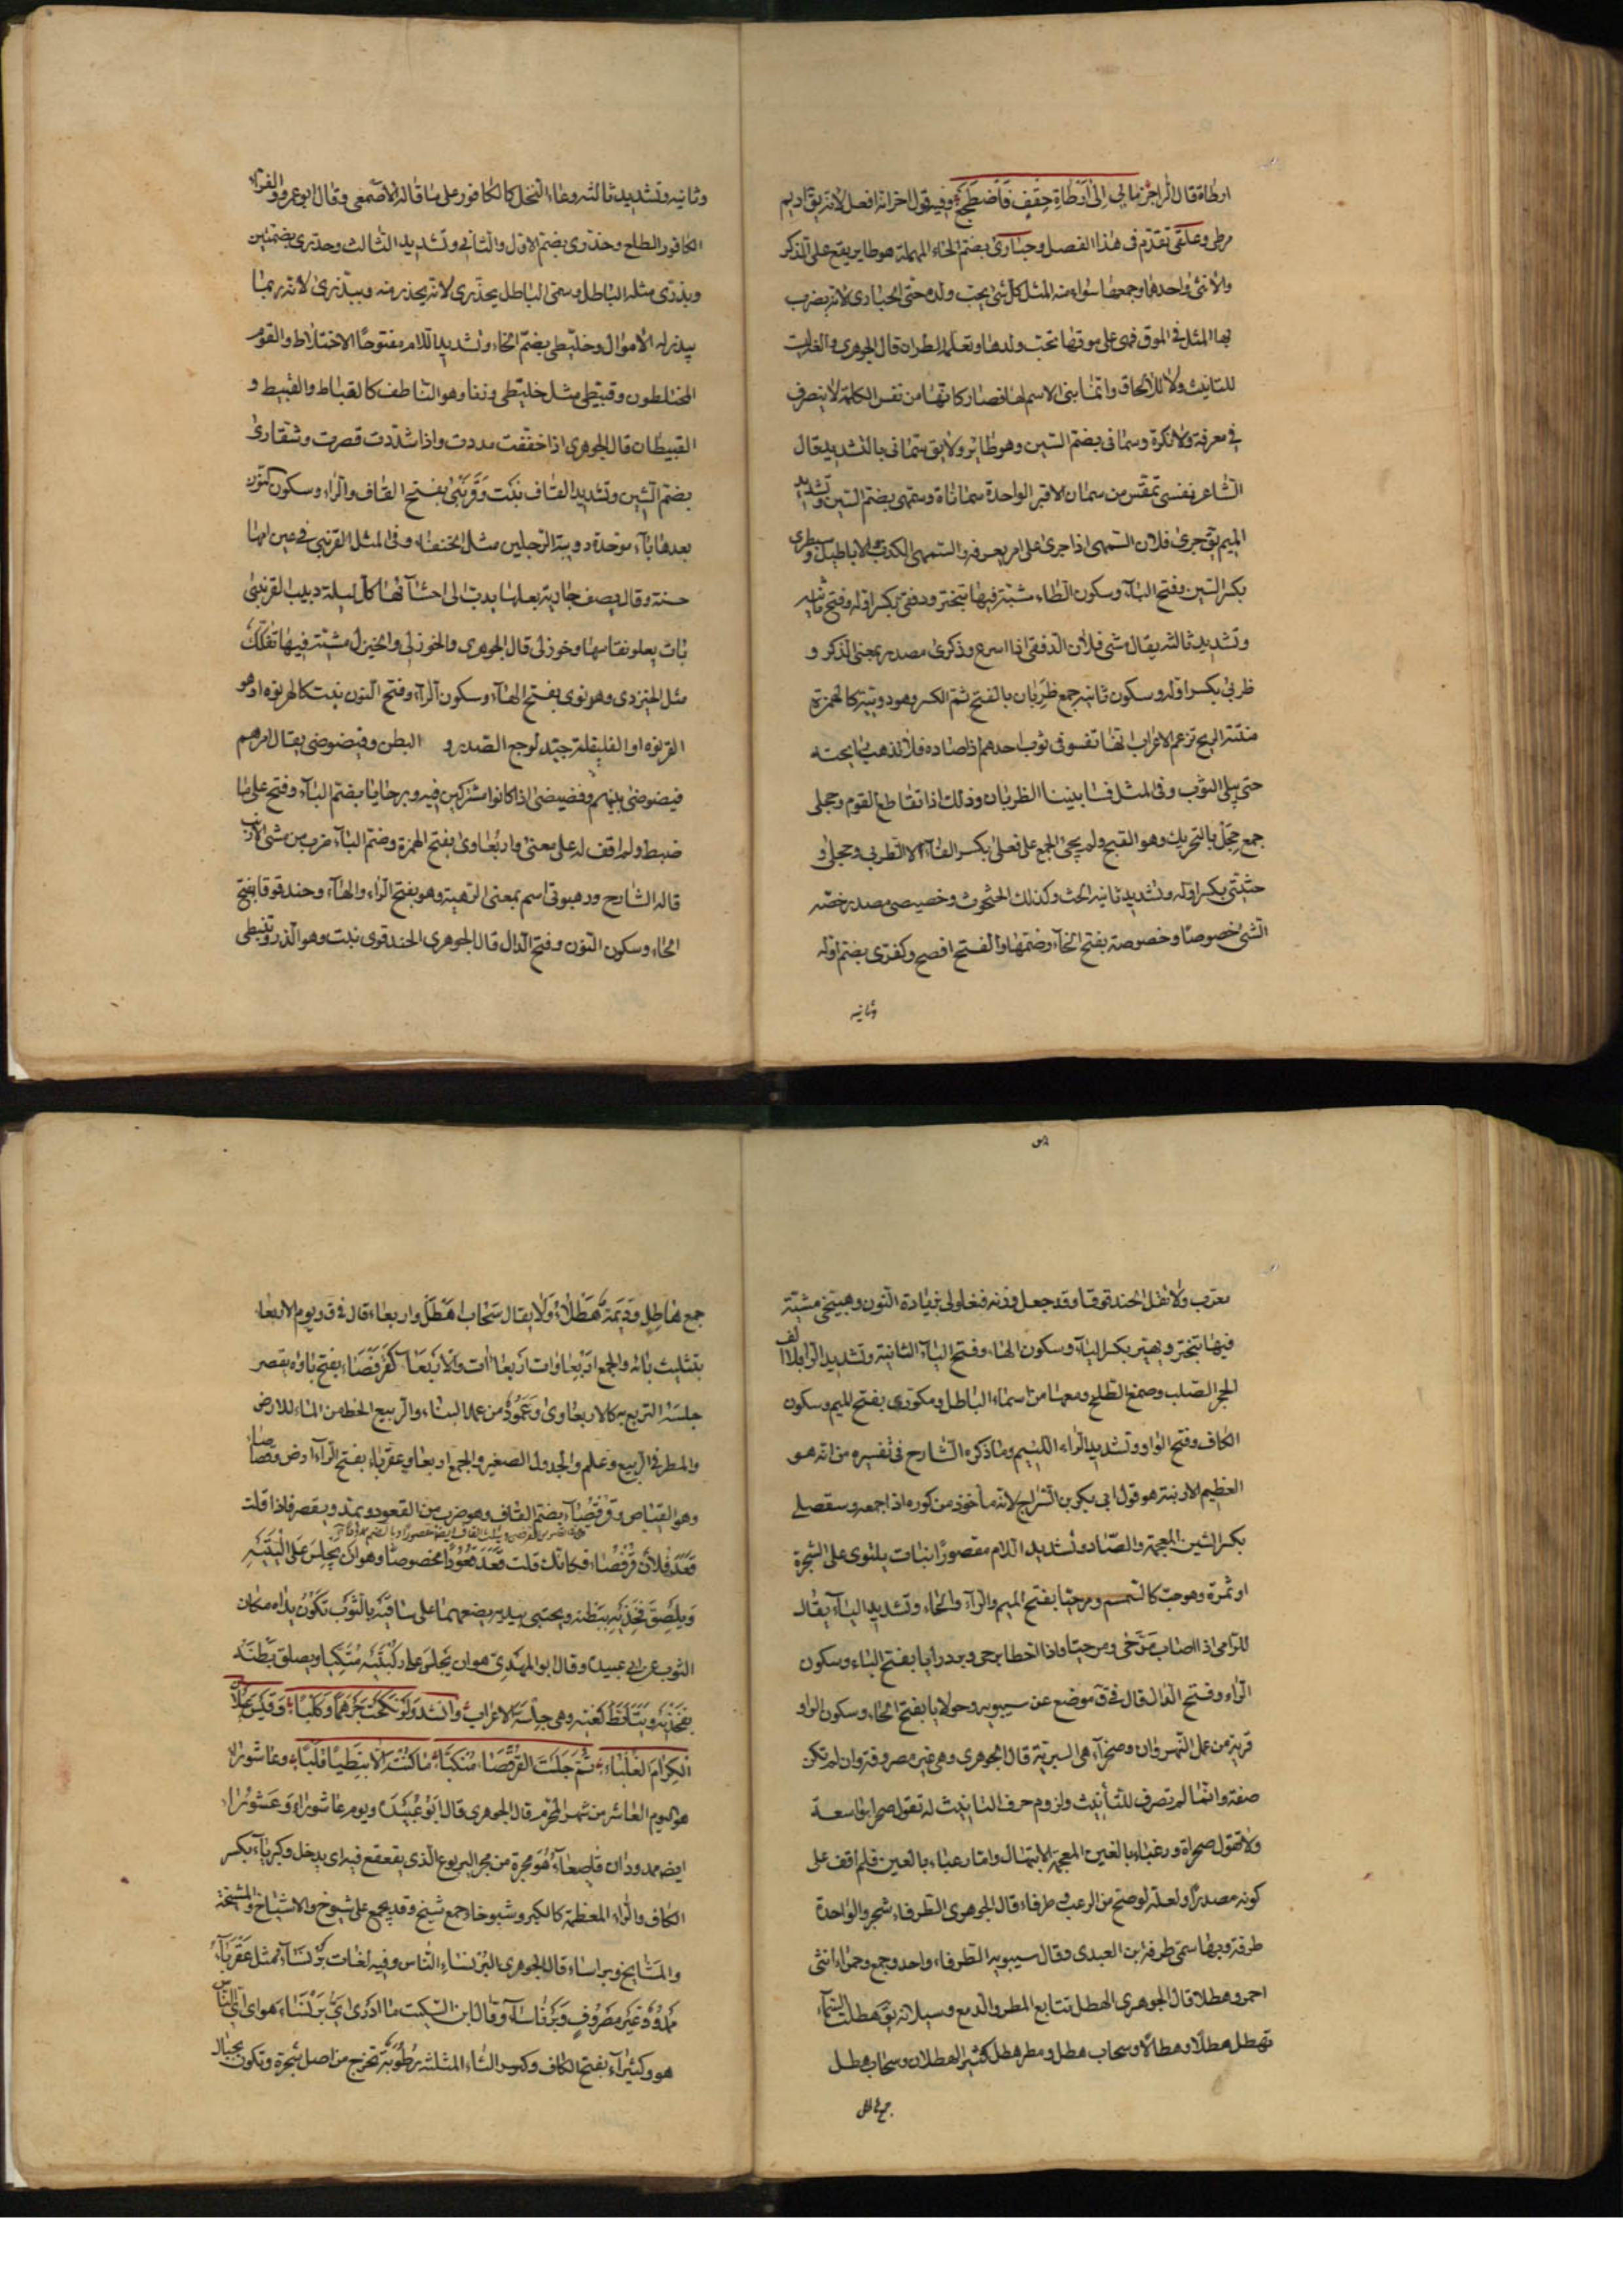 ارطاة قال الراجز مال الى ارطاة حقف فاضطجع وفيه قول اخر انه افعل لانه يق اديم
مرطى وعلقى تقدم فى هذا الفصل وحبارى بضم الحاء المهملة هو طاير يقع على الذكر
والانثى واحدها وجمعها سواء منه المثل كل شئ يحب ولده حتى الحبارى لانه يضرب
بها المثل فى الموق فهى على موقها تحب ولدها وتعلمه الطيران قال الجوهرى والفه ليست
للتانيث ولا للالحاق وانما بنى الاسم لها فصار كانها من نفس الكلمة لا ينصرف
فى معرفة ولا نكرة وسمانى بضم السين وهو طاير ولا يق سمانى بالتشديد قال
الشاعر نفسى تمقس من سمانى الاقبر الواحدة سماناة وسمهى بضم السين وتشديد
الميم يق جرى فلان السمهى اذا جرى على امر يعرفه والسمهى الكذب والاباطيل وسبطرى
بكسر السين وفتح الباء وسكون الطاء مشية فيها تبختر ودفقى بكسر اوله وفتح ثانيه
وتشديد ثالثه يقال مشى فلان الدفقى اذا اسرع وذكرى مصدر بمعنى الذكر و
ظربى بكسر اوله وسكون ثانيه جمع ظربان بالفتح ثم الكسر وهو دويبة كالهرة
منتنة الريح تزعم الاعراب انها تفسو فى ثوب احدهم اذا صاده فلا تذهب رايحته
حتى يبلى الثوب وفى المثل فسا بيننا الظربان وذلك اذا تقاطع القوم وحجلى
جمع حجل بالتحريك وهو القبج ولم يجئ الجمع على فعلى بكسر الفاء الا الظربى وحجلى و
حثيثى بكسر اوله وتشديد ثانيه الحث وكذلك الحثحوث وخصيصى مصدر خصه
الشئ خصوصا وخصوصية بفتح الخاء وضمها والفتح افصح وكفرى بضم اوله
وثانيه
وثانيه وتشديد ثالثه وعاء النخل كالكافور على ما قاله الاصمعى وقال ابو عمرو والفراء
الكافور الطلع وحذرى بضم الاول والثانى وتشديد الثالث وحذرى بضمتين
وبذرى مثله الباطل وسمى الباطل بحذرى لانه يحذر منه وببذرى لانه ربما
يبذر له الاموال وخليطى بضم الخاء وتشديد اللام مفتوحا الاختلاط والقوم
المختلطون وقبيطى مثل خليطى وزنا وهو الناطف كالقباط والقبيط و
القبيطا قال الجوهرى اذا خففت مددت واذا شددت قصرت وشقارى
بضم الشين وتشديد القاف نبت وقرنبى بفتح القاف والراء وسكون النون
بعدها باء موحدة دويبة الرجلين مثل الخنفساء وفى المثل القرنبى فى عين امها
حسنة وقال يصف جارية بعلها يدب الى احشائها كل ليلة دبيب القرنبى
بات يعلو نقا سهلا وخوزلى قال الجوهرى والخوزلى والخيزلى مشية فيها تفكك
مثل الخيزرى وهرنوى بفتح الهاء وسكون الراء وفتح النون نبت كالهرنوه او هو
القرنوه او الفليفلة جيد لوجع الصدر و البطن وفيضوضى يقال امرهم
فيضوضى بينهم وفضيضى اذا كانوا مشتركين فيه وبرحايا بضم الباء وفتح على ما
ضبط ولم اقف له على معنى واربعاوى بفتح الهمزة وضم الباء ضرب من مشى الارنب
قاله الشارح ورهبوتى اسم بمعنى الرهبة وهو بفتح الراء والهاء وحندقوقا بفتح
الحاء وسكون النون وفتح الدال قال الجوهرى الحندقوق نبت وهو الذرق نبطى
معرب ولا تقل الحندقوقا وقد جعل وزنه فنعلولى بزيادة النون وهبيخى مشية
فيها تبختر ويهير بكسر الياء وسكون الهاء وفتح الياء الثانية وتشديد الراء بلا الف
الحجر الصلب وصمغ الطلح ومعها من اسماء الباطل ومكورى بفتح الميم وسكون
الكاف وفتح الواو وتشديد الراء اللئيم وما ذكره الشارح فى تفسيره من انه هو
العظيم الارنبة هو قول ابى بكر بن السراج لانه ماخوذ من كوره اذا جمعه وشقصلى
بكسر الشين المعجمة والصاد وتشديد اللام مقصورا نبات يلتوى على الشجرة
او ثمرة وهو حب كالسمسم ومرحيا بفتح الميم والراء والحاء وتشديد الياء يقال
للرامى اذا اصاب مرحى ومرحيا واذا اخطا برحى وبردرايا بفتح الباء وسكون
الراء وفتح الدال قال فى ق موضع عن سيبويه وحولايا بفتح الحاء وسكون الواو
قرية من عمل النهروان وصحراء هى البرية قال الجوهرى وهى غير مصروفة وان لم تكن
صفة وانما لم تصرف للتأنيث ولزوم حرف التانيث له تقول صحراء واسعة
ولا تقول صحراة ورغباء بالغين المعجمة الابتهال واما رعباء بالعين فلم اقف على
كونه مصدرا ولعله لو صح من الرعب وطرفاء قال الجوهرى الطرفاء شجر والواحدة
طرفة وبها سمى طرفة بن العبدى وقال سيبويه الطرفاء واحد وجمع وحمراء انثى
احمر وهطلاء قال الجوهرى الهطل تتابع المطر والدمع وسيلانه يق هطلت السماء
تهطل هطلا وهطلانا وسحاب هطل ومطر هطل كثير الهطلان وسحاب هطل
جمع هاطل
جمع هاطل وديمة هطلاء ولا يقال سحاب اهطل واربعاء قال فى ق ويوم الاربعاء
بتثليث بائه والجمع اربعاوات اربعاات والاربعا كقرفصاء بفتح باؤه يقصر
جلسة التربع كالاربعاوى وعمود من عمد البناء والربيع الحظ من الماء للارض
والمطر فى الربيع وعلم والجدول الصغير والجمع اربعاء وعقرباء بفتح الراء ارض وقصاصاء
وهو القصاص وقرفصاء بضم القاف وهو ضرب من القعود ويمد ويقصر فاذا قلت
قعد فلان قرفصاء فكانك قلت قعد قعودا مخصوصا وهو ان يجلس على اليتيه
ويلصق فخذيه ببطنه ويحتبى بيديه يضعهما على ساقيه بالثوب تكون يداه مكان
الثوب عن ابى عبيد وقال ابو المهدى هو ان يجلس على ركبتيه متكيا ويصلق بطنه
بفخذيه ويتابط كفيه وهى جلسة الاعراب وانشد ولو نكحت جرهما وكلبا وقيس عيلان
الكرام الغلباء ثم جلست القرفصا منكبا ما كنت الا نبطيا قلبا وعاشوراء
هو اليوم العاشر من شهر المحرم قال الجوهرى قال ابو عبيد ويوم عاشوراء وعشوراء
ايضا ممدودان قاصعاء هو حجرة من حجر اليربوع الذى يقعقع فيه اى يدخل وكبرياء بكسر
الكاف والراء المعظمة كالكبر وشيوخاء جمع شيخ وقد يجمع على شيوخ والاشياخ والمشيخة
والمشايخ وبراساء قال الجوهرى البرنساء الناس وفيه لغات برنساء مثل عقرباء
ممدود غير مصروف وبرناساء وقال ابن السكيت ما ادرى اى برنساء هو اى اى الناس
هو وكثيراء بفتح الكاف وكسر الثاء المثلثه رطوبة تخرج من اصل شجرة وتكون بجبال